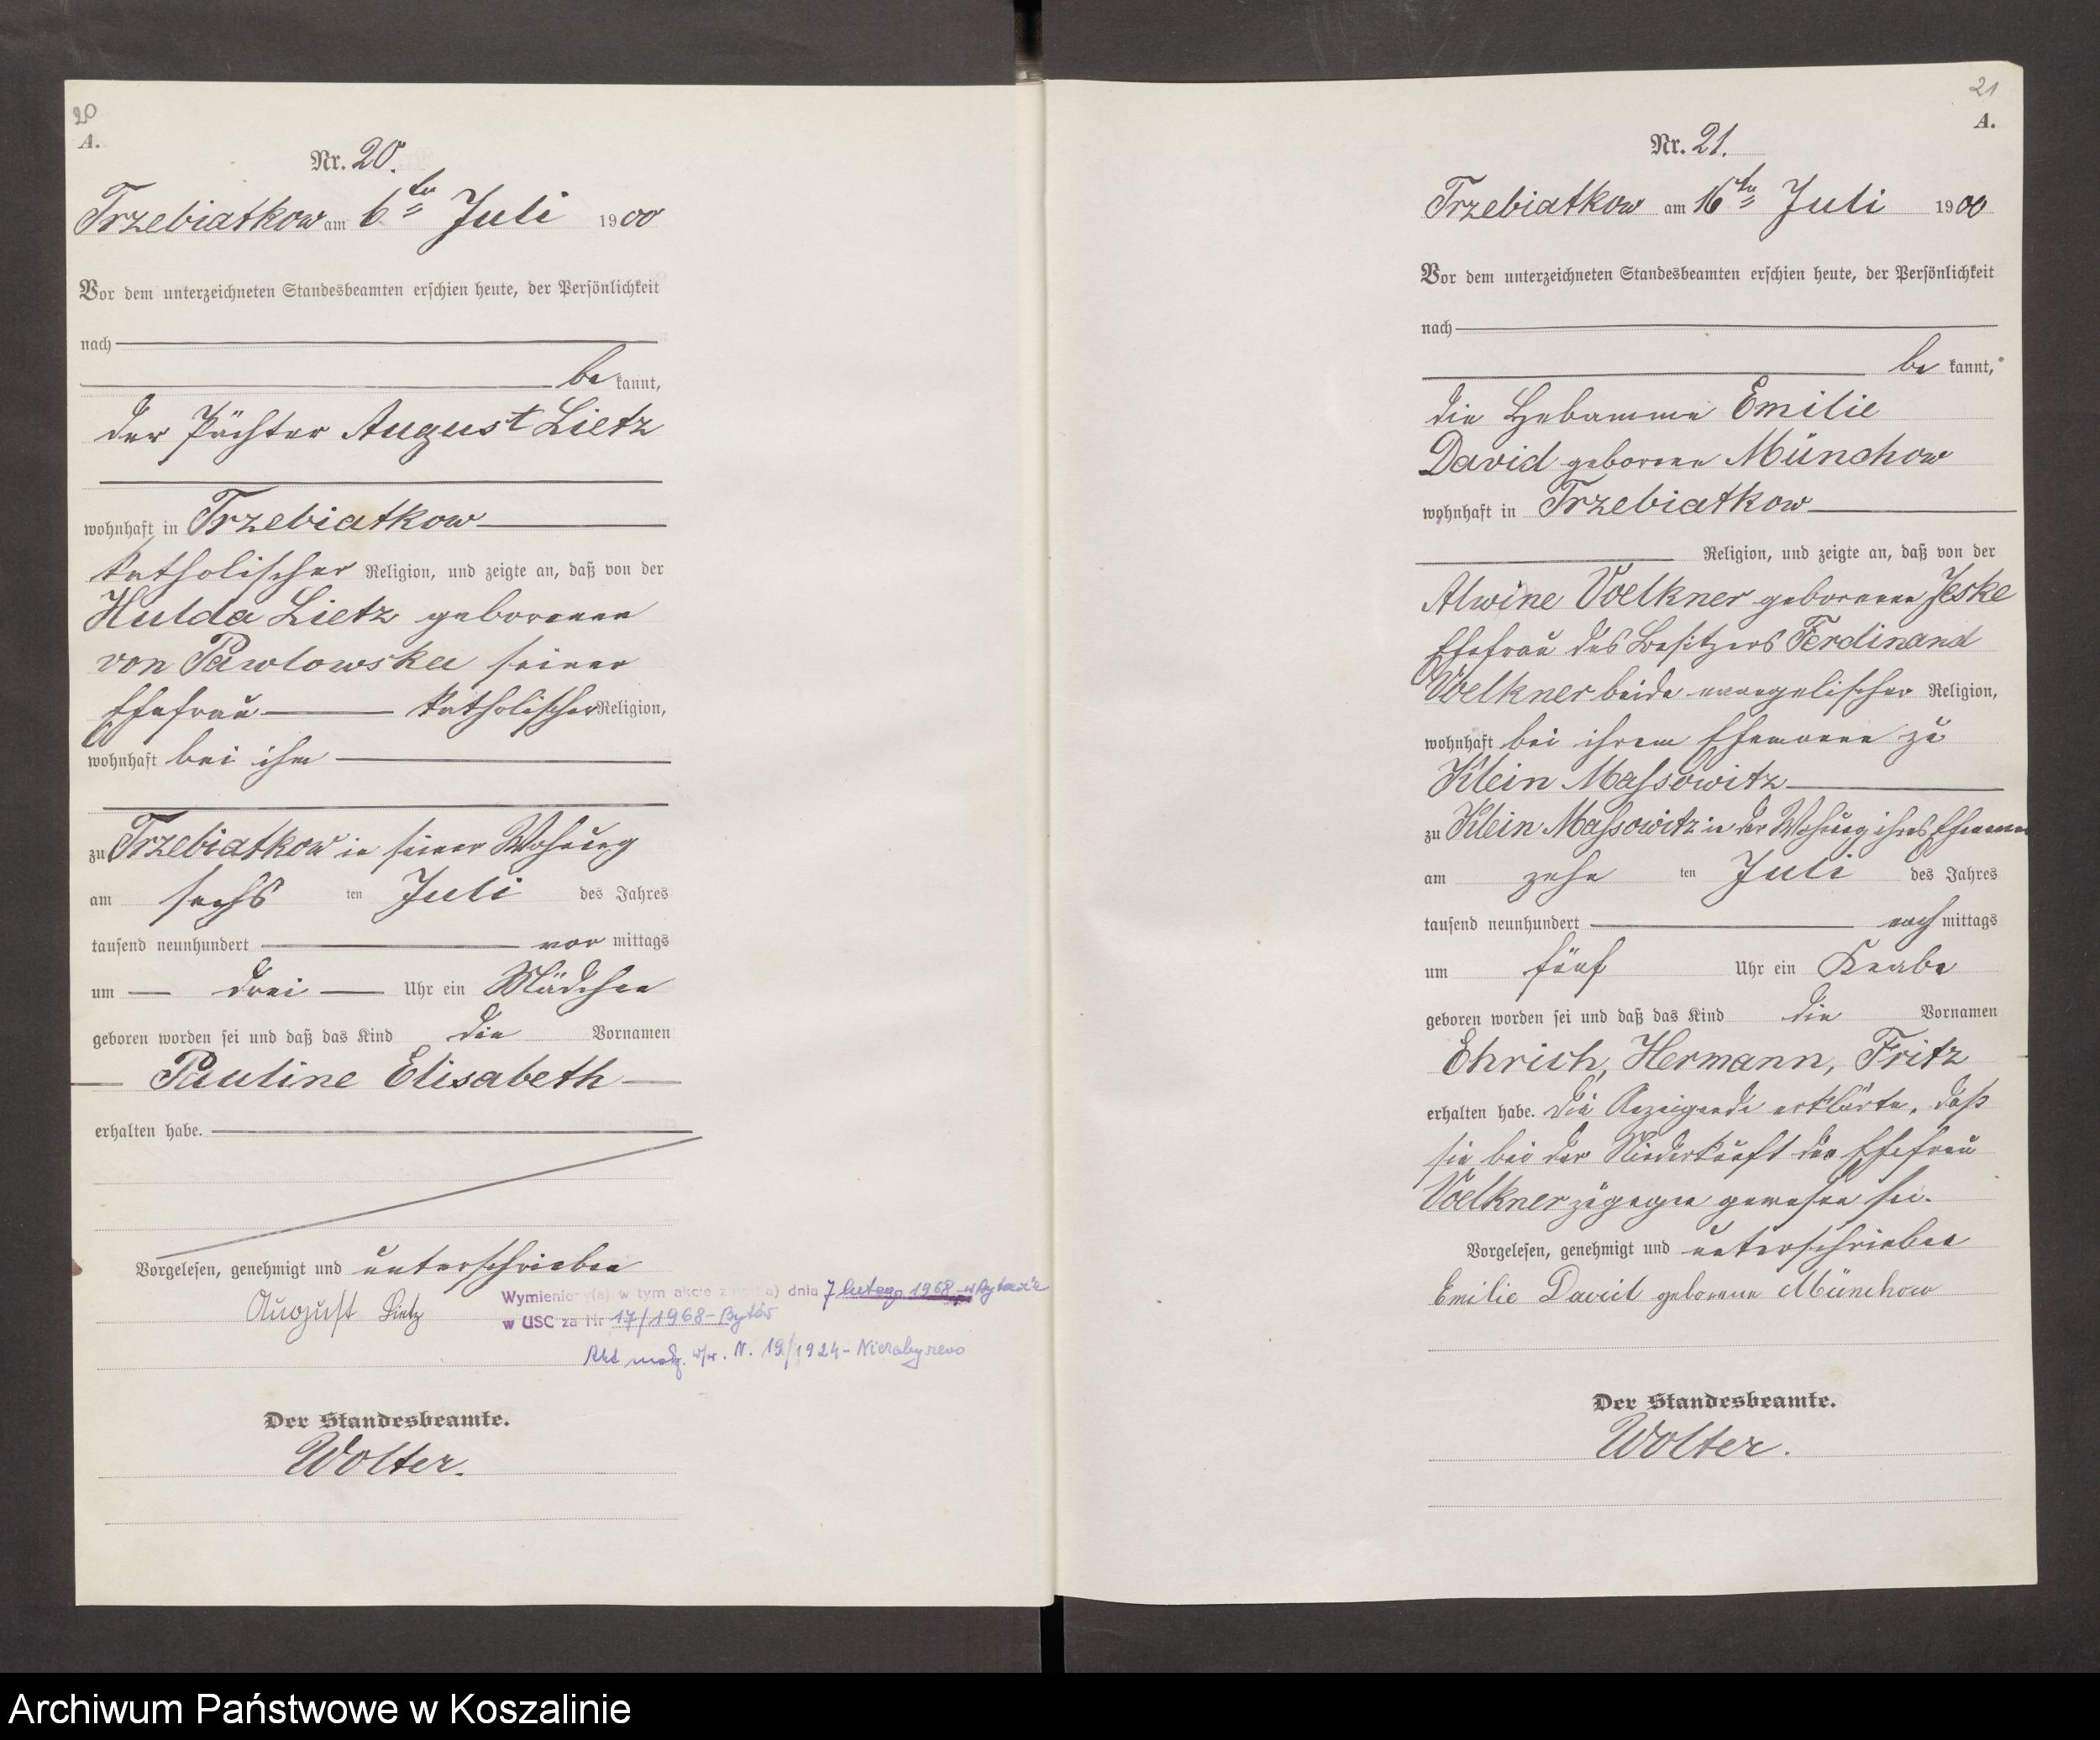 20
A.
Nr. 20.
Trzebiatkow am 6ten Juli 1900
Vor dem unterzeichneten Standesbeamten erschien heute, der Persönlichkeit
nach
be kannt,
der Pächter August Lietz
wohnhaft in Trzebiatkow
katholischer Religion, und zeigte an, daß von der
Hulda Lietz geborenen
von Pawlowska seiner
Ehefrau katholischer Religion,
wohnhaft bei ihm
zu Trzebiatkow in seiner Wohnung
am sechs ten Juli des Jahres
tausend neunhundert vor mittags
um drei Uhr ein Mädchen
geboren worden sei und daß das Kind die Vornamen
Pauline Elisabeth
erhalten habe.
Vorgelesen, genehmigt und unterschrieben
August Lietz
Wymieniony(a) w tym akcie dnia 7 lutego 1968
w USC za Nr 17/1968-Bytów
Akt N. 19/1924-
Der Standesbeamte.
Wolter.
21
A.
Nr. 21.
Trzebiatkow am 16ten Juli 1900
Vor dem unterzeichneten Standesbeamten erschien heute, der Persönlichkeit
nach
be kannt,
die Hebamme Emilie
David geborene Münchow
wohnhaft in Trzebiatkow
Religion, und zeigte an, daß von der
Alwine Voelkner geborenen Jeske
Ehefrau des Besitzers Ferdinand
Voelkner beide evangelischer Religion,
wohnhaft bei ihrem Ehemann zu
Klein Massowitz
zu Klein Massowitz in der Wohnung ihres Ehemann
am zehn ten Juli des Jahres
tausend neunhundert nach mittags
um fünf Uhr ein Knabe
geboren worden sei und daß das Kind die Vornamen
Ehrich, Hermann, Fritz
erhalten habe. Die Anzeigende erklärte, daß
sie bei der Niederkunft der Ehefrau
Voelkner zugegen gewesen sei.
Vorgelesen, genehmigt und unterschrieben
Emilie David geborene Münchow
Der Standesbeamte.
Wolter.
Archiwum Państwowe w Koszalinie